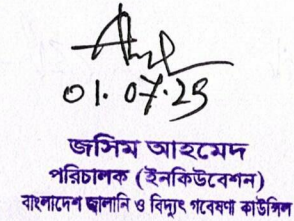 ০১.০৭.২৪
জসিম আহমেদ
পরিচালক (ইনকিউবেশন)
বাংলাদেশ জ্বালানি ও বিদ্যুৎ গবেষণা কাউন্সিল